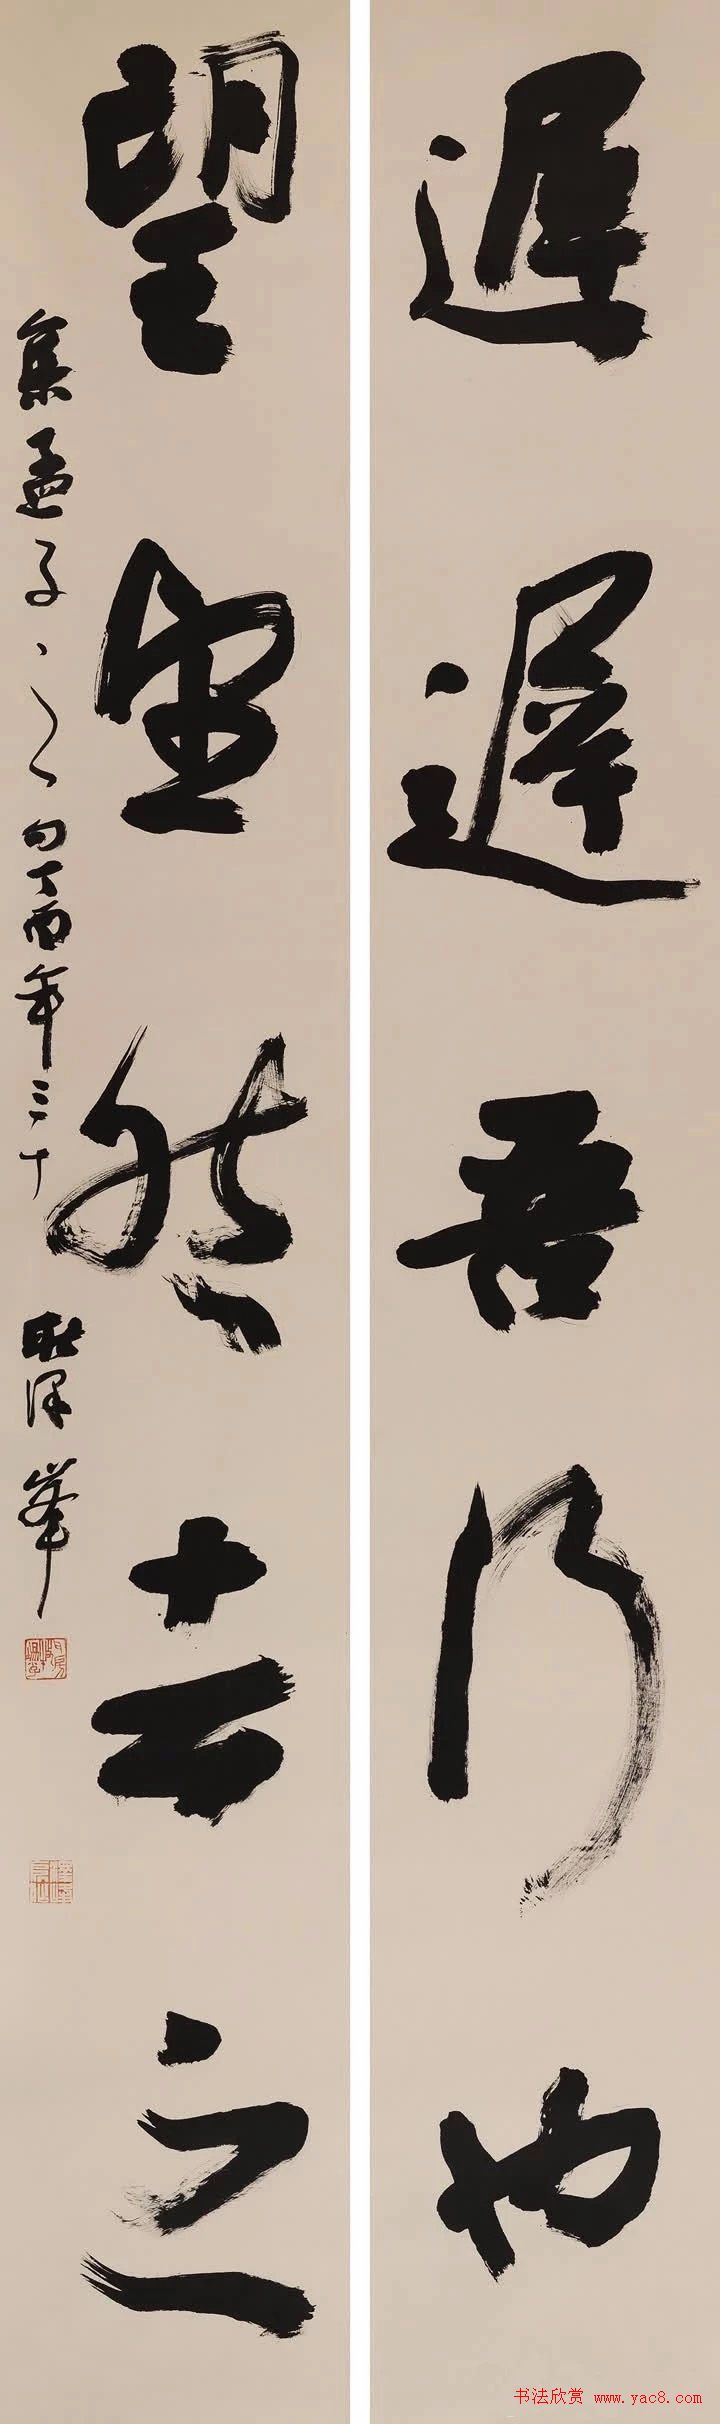 遲遲吾行也
望望然去之
集孟子之句丁酉年三十 耿澤峯
书法欣赏 www.yac8.com